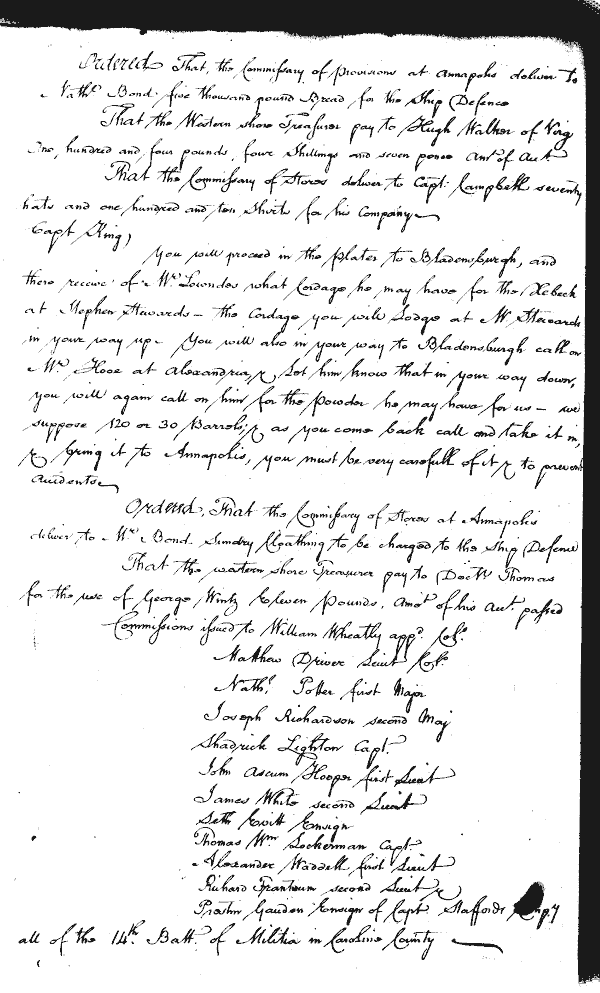 Ordered That, the Commissary of Provisions at Annapolis deliver to
Nathl. Bond five thousand pound Bread for the Ship Defence
That the Western shore Treasurer pay to Hugh Walker of Virg
One, hundred and four pounds, four Shillings and seven pence Amt. of Acct
That the Commissary of Stores deliver to Capt. Campbell seventy
hats and one hundred and ten Shirts for his Company
Capt King,
You will proceed in the Plater to Bladensburgh, and
there receive of Mr. Lowndes what Cordage he may have for the Xebeck
at Stephen Stewards - the Cordage you will Lodge at Mr. Stewards
in your way up - You will also in your way to Bladensburgh call on
Mr. Hooe at Alexandria, & Let him know that in your way down,
you will again call on him for the Powder he may have for us - we
suppose 120 or 30 Barrels; & as you come back call and take it in,
& bring it to Annapolis, you must be very carefull of it & to prevent
accidents
Ordered, That the Commissary of Stores at Annapolis
deliver to Mr. Bond Sundry Cloathing to be charged to the Ship Defence
That the western shore Treasurer pay to Doctr. Thomas
for the use of George Wintz Eleven Pounds, Amot. of his Acct. passed
Commissions issued to William Wheatly appd. Colo.
Matthew Driver Lieut Colo.
Nathl. Potter first Major
Joseph Richardson second Maj
Shadrick Lighton Capt.
John Ascum Hooper first Lieut
James White second Lieut
Seth Evitt Ensign
Thomas Wm. Lockerman Capt.
Alexander Waddell first Lieut
Richard second Lieut &
Gauden Ensign of Capt Staffords Compy
all of the 14th. Batt. of Militia in Caroline County